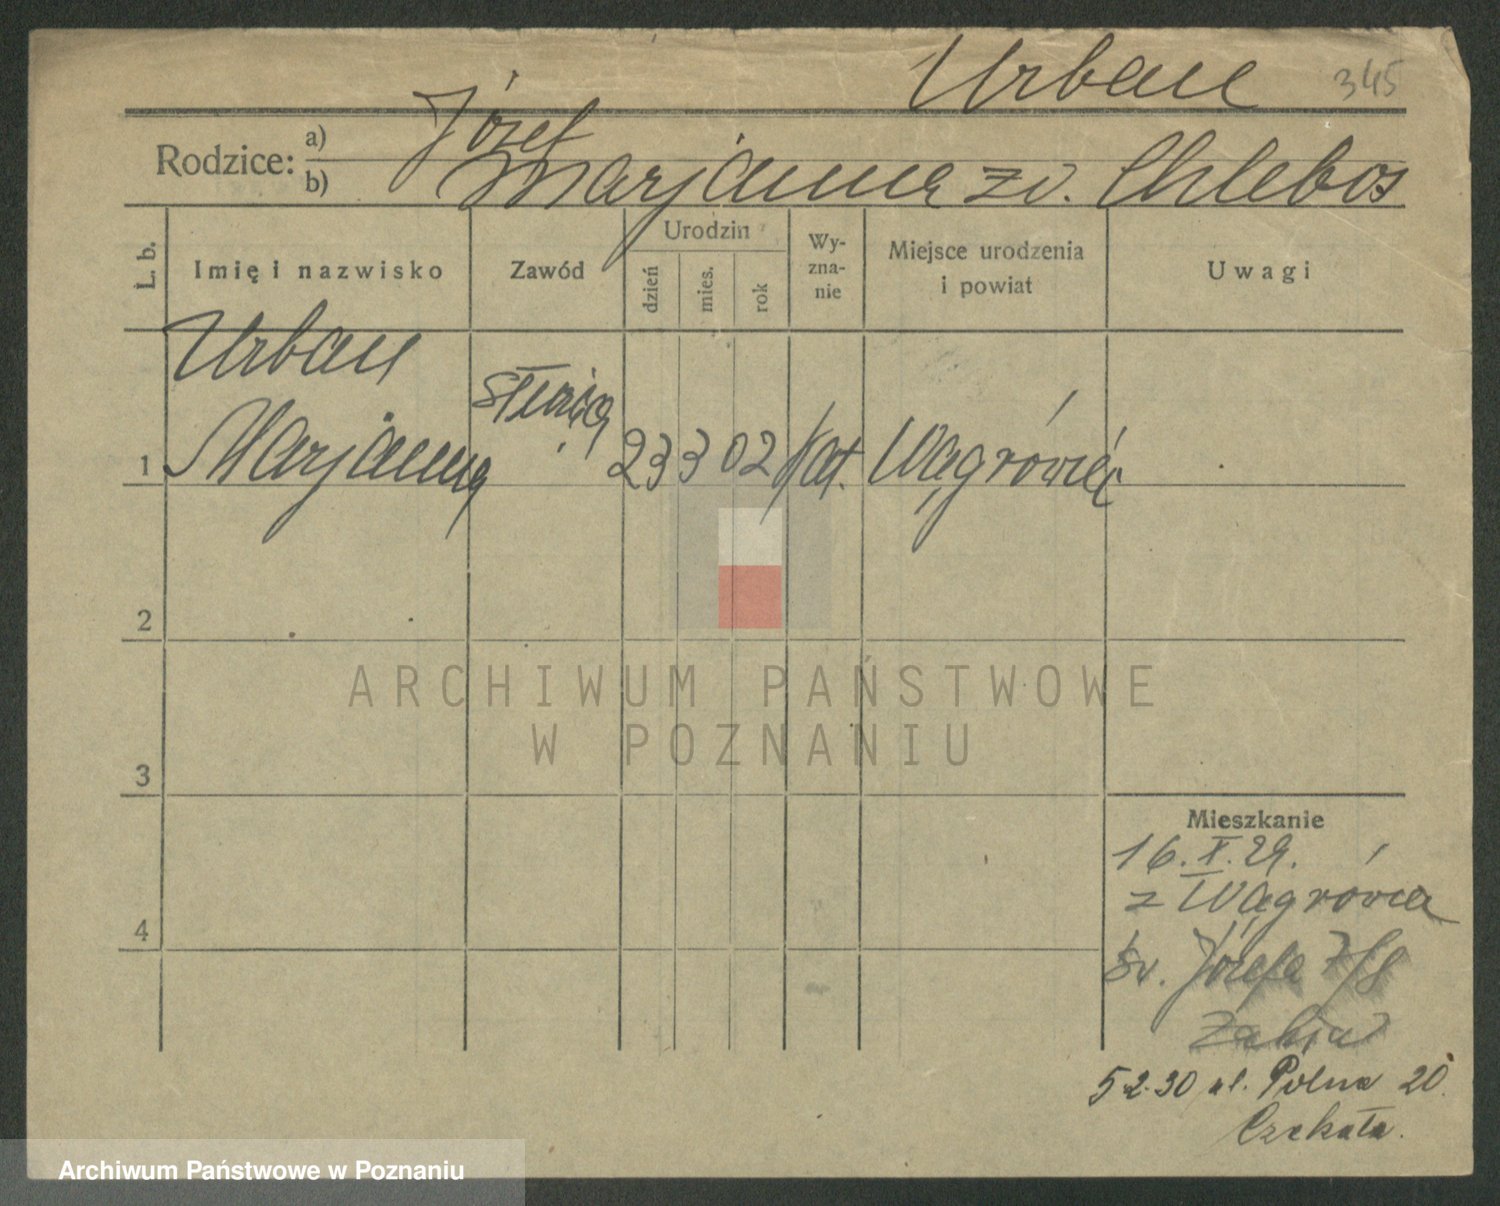 Urban 345
Rodzice: a) Józef
b) Marjanna zd. Chlebos
L. b. Imię i nazwisko Zawód Urodzin dzień mies. rok Wy-zna-nie Miejsce urodzenia i powiat Uwagi
Urban
1 Marjanna służąca 23 3 02 kat. Wągrówiec
2
3
4
Mieszkanie
16.X.29.
z Wągrówca
Św. Józefa 7/8
5.2.30 ul. Polna 20.
Czekała.
ARCHIWUM PAŃSTWOWE
W POZNANIU
Archiwum Państwowe w Poznaniu